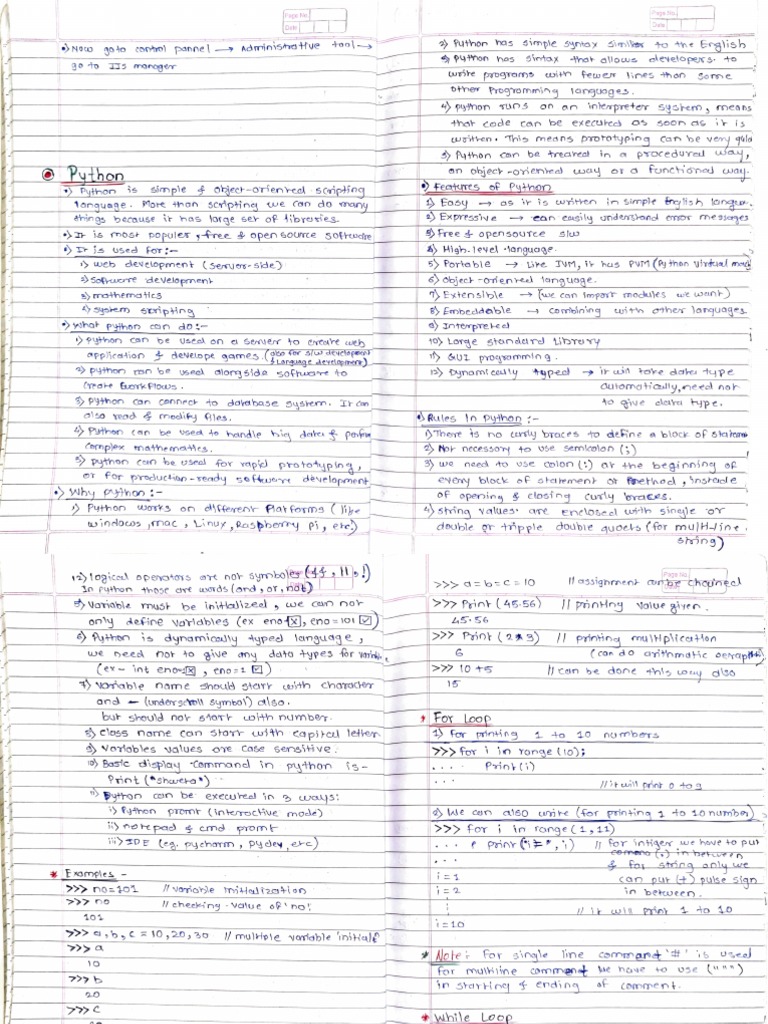 Page No.
Date
•) Now goto control pannel → Administrative tool →
go to IIs manager
Python
•) Python is simple & object-oriented scripting
language. More than scripting we can do many
things because it has large set of libraries.
•) It is most populer, free & open source software
•) It is used for:-
1) web development (server-side)
2) software development
3) mathematics
4) system scripting
•) What python can do:-
1) python can be used on a server to create web
application & develope games. (also for s/w development
& language development)
2) python can be used alongside software to
create workflows.
3) python can connect to database system. It can
also read & modify files.
4) Python can be used to handle big data &
complex mathematics.
5) python can be used for rapid prototyping,
or for production-ready software development
•) Why python:-
1) Python works on different Platforms (like
windows, mac, Linux, Raspberry pi, etc)
Page No.
Date
2) Python has simple syntax similer to the English
3) Python has sintax that allows developers to
write programs with fewer lines than some
other programming languages.
4) python runs on an interpreter system, means
that code can be executed as soon as it is
written. This means prototyping can be very
5) Python can be treated in a procedured way,
an object-oriented way or a functional way.
•) Features of Python
1) Easy → as it is written in simple English
2) Expressive → can easily understand error messages
3) Free & opensource s/w
4) High-level language.
5) Portable → Like JVM, it has PVM (Python virtual
6) Object-oriented language.
7) Extensible → (we can import modules we want)
8) Embeddable → combining with other languages
9) Interpreted
10) Large standard Library
11) GUI programming.
12) Dynamically typed → it will take data type
automatically, need not
to give data type.
•) Rules In python:-
1) There is no curly braces to define a block of
2) Not necessary to use semicolon (;)
3) we need to use colon (:) at the beginning of
every block of statement or method, insteade
of opening & closing curly braces.
4) string values are enclosed with single or
double or tripple double quoets (for multi-line
string)
12) logical operators are not symbols (&&, ||, !)
In python those are words (and, or, not)
5) Variable must be initialized, we can not
only define variables (ex eno☒, eno=101 ☑)
6) Python is dynamically typed language,
we need not to give any data types for
(ex- int eno=☒, eno=1 ☑)
7) variable name should start with character
and - (underscroll symbol) also.
but should not start with number.
8) class name can start with capital letter
9) Variables values are case sensitive.
10) Basic display command in python is-
Print("shweta")
11) Python can be executed in 3 ways:
i) Python promt (interactive mode)
ii) notepad & cmd promt
iii) IDE (eg. pycharm, pydev, etc)
* Examples -
>>> no=101 // variable initialization
>>> no // checking value of 'no'
101
>>> a, b, c = 10, 20, 30 // multiple variable
>>> a
10
>>> b
20
>>> c
Page No.
>>> a = b = c = 10 // assignment can be chained
>>> Print (45.56) // printing value given.
45.56
>>> Print (2*3) // printing multiplication
6 (can do arithmatic
>>> 10 + 5 // can be done this way also
15
For Loop
1) for printing 1 to 10 numbers
>>> for i in range(10):
.... Print(i)
...
// it will print 0 to 9
2) We can also write (for printing 1 to 10 number)
>>> for i in range (1, 11)
... print("i=", i) // for intiger we have to put
comma (,) in between
... & for string only we
i = 1 can put (+) pulse sign
i = 2 in between.
⋮ // it will print 1 to 10
i = 10
* Note: For single line command '#' is used
for multiline command we have to use (""")
in starting & ending of comment.
* While Loop